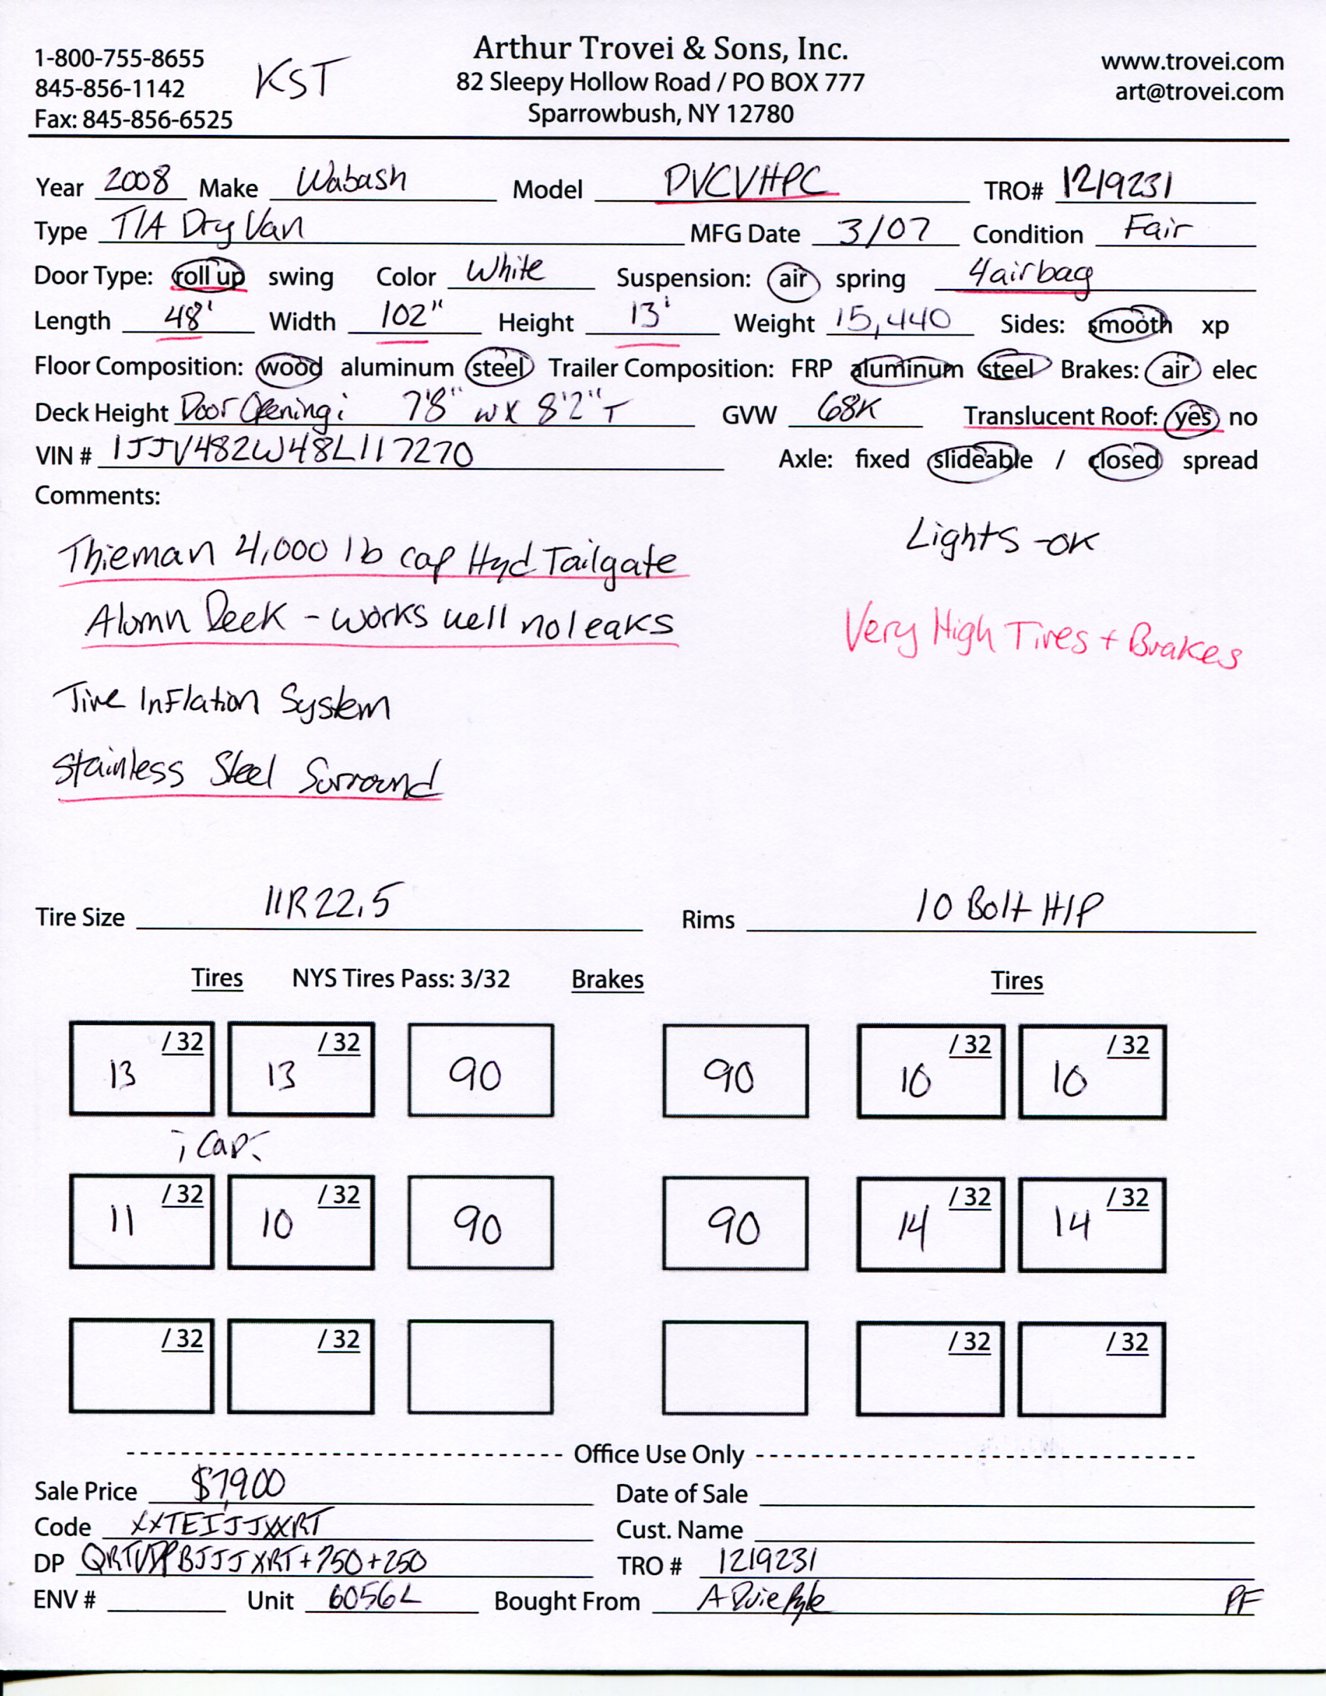 1-800-755-8655
845-856-1142
Fax: 845-856-6525
KST
Arthur Trovei & Sons, Inc.
82 Sleepy Hollow Road / PO BOX 777
Sparrowbush, NY 12780
www.trovei.com
art@trovei.com
Year 2008 Make Wabash Model DVCVHPC TRO# 1219231
Type T/A Dry Van MFG Date 3/07 Condition Fair
Door Type: roll up swing Color White Suspension: air spring 4 airbag
Length 48' Width 102" Height 13' Weight 15,440 Sides: smooth xp
Floor Composition: wood aluminum steel Trailer Composition: FRP aluminum steel Brakes: air elec
Deck Height Door Opening: 7'8" W X 8'2" T GVW 68K Translucent Roof: yes no
VIN # 1JJV482W48L117270 Axle: fixed slideable / closed spread
Comments:
Thieman 4,000 lb cap Hyd Tailgate
Lights - OK
Alumn Deck - works well no leaks
Very High Tires + Brakes
Tire Inflation System
Stainless Steel Surround
Tire Size 11R22.5 Rims 10 Bolt H/P
Tires NYS Tires Pass: 3/32 Brakes Tires
13 /32 13 /32 90 90 10 /32 10 /32
Cap
11 /32 10 /32 90 90 14 /32 14 /32
/32 /32 /32 /32
Office Use Only
Sale Price $7,900 Date of Sale
Code XXTEIJJXXRT Cust. Name
DP +750+250 TRO # 1219231
ENV # Unit 6056L Bought From A PF